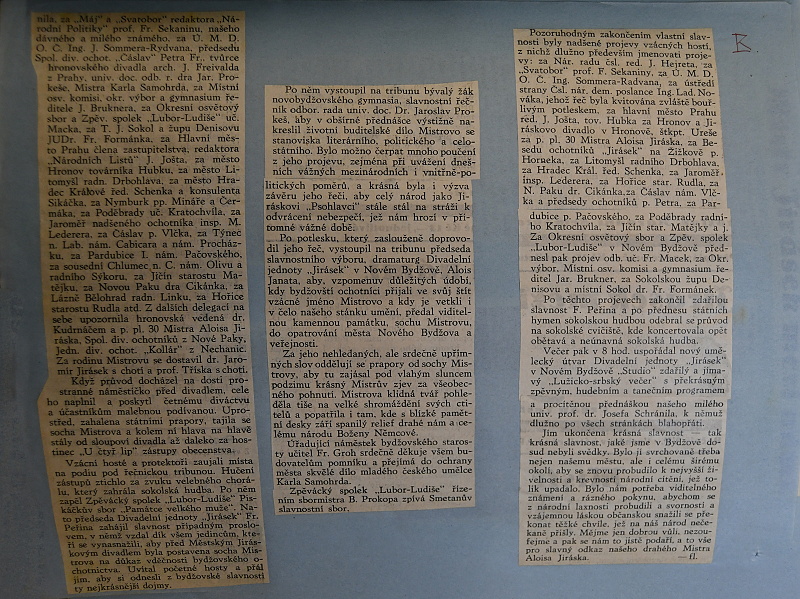 nila, za „Máj" a „Svatobor" redaktora „Ná-
rodní Politiky" prof. Fr. Sekaninu, našeho
dávného a milého známého, za Ú. M. D.
O. Č. Ing. J. Sommera-Rydvana, předsedu
Spol. div. ochot. „Čáslav" Petra Fr., tvůrce
hronovského divadla arch. J. Freivalda
z Prahy, univ. doc. odb. r. dra Jar. Pro-
keše, Mistra Karla Samohrda, za Místní
osv. komisi, okr. výbor a gymnasium ře-
ditele J. Bruknera, za Okresní osvětový
sbor a Zpěv. spolek „Lubor-Ludiše" uč.
Macka, za T. J. Sokol a župu Denisovu
JUDr. Fr. Formánka, za Hlavní měs-
to Prahu člena zastupitelstva, redaktora
„Národních Listů" J. Jošta, za město
Hronov továrníka Hubku, za město Li-
tomyšl radn. Drbohlava, za město Hra-
dec Králové řed. Schenka a konsulenta
Sikáčka, za Nymburk pp. Mináře a Čer-
máka, za Poděbrady uč. Kratochvíla, za
Jaroměř nadšeného ochotníka insp. M.
Lederera, za Čáslav p. Vlčka, za Týnec
n. Lab. nám. Cabicara a nám. Procház-
ku, za Pardubice I. nám. Pačovského,
za sousední Chlumec n. C. nám. Olivu a
radního Sýkoru, za Jičín starostu Ma-
tějku, za Novou Paku dra Cikánka, za
Lázně Bělohrad radn. Linku, za Hořice
starostu Rudla atd. Z dalších delegací na
sebe upozornila hronovská vedená dr.
Kudrnáčem a p. pl. 30 Mistra Aloisa Ji-
ráska, Spol. div. ochotníků z Nové Paky,
Jedn. div. ochot. „Kollár" z Nechanic.
Za rodinu Mistrovu se dostavil dr. Jaro-
mír Jirásek s chotí a prof. Tříska s chotí.
Když průvod docházel na dosti pro-
stranné náměstíčko před divadlem, cele
ho naplnil a poskytl četnému diváctvu
a účastníkům malebnou podívanou. Upro-
střed, zahalena státními prapory, tajila se
socha Mistrova a kolem ní hlava na hlavě
stály od sloupoví divadla až daleko za hos-
tinec „U čtyř lip" zástupy obecenstva.
Vzácní hosté a protektoři zaujali místa
na podiu pod řečnickou tribunou. Hučení
zástupů ztichlo za zvuku velebného chorá-
lu, který zahrála sokolská hudba. Po něm
zapěl Zpěvácký spolek „Lubor-Ludiše" Pis-
káčkův sbor „Památce velkého muže". Na-
to předseda Divadelní jednoty „Jirásek" Fr.
Peřina zahájil slavnost případným proslo-
vem, v němž vzdal dík všem jedincům, kte-
ří se vynasnažili, aby před Městským Jirás-
kovým divadlem byla postavena socha Mis-
trova na důkaz vděčnosti bydžovského o-
chotnictva. Uvítal početné hosty a přál
jim, aby si odnesli z bydžovské slavnosti
ty nejkrásnější dojmy.
Po něm vystoupil na tribunu bývalý žák
novobydžovského gymnasia, slavnostní řeč-
ník odbor. rada univ. doc. Dr. Jaroslav Pro-
keš, aby v obšírné přednášce výstižně na-
kreslil životní buditelské dílo Mistrovo se
stanoviska literárního, politického a celo-
státního. Bylo možno čerpat mnoho poučení
z jeho projevu, zejména při uvážení dneš-
ních vážných mezinárodních i vnitřně-po-
litických poměrů, a krásná byla i výzva
závěru jeho řeči, aby celý národ jako Ji-
ráskovi „Psohlavci" stále stál na stráži k
odvrácení nebezpečí, jež nám hrozí v pří-
tomné vážné době.
Po potlesku, který zaslouženě doprovo-
dil jeho řeč, vystoupil na tribunu předseda
slavnostního výboru, dramaturg Divadelní
jednoty „Jirásek" v Novém Bydžově, Alois
Janata, aby, vzpomenuv důležitých údobí,
kdy bydžovští ochotníci přijali ve svůj štít
vzácné jméno Mistrovo a kdy je vetkli i
v čelo našeho stánku umění, předal viditel-
nou kamennou památku, sochu Mistrovu,
do opatrování města Nového Bydžova a
veřejnosti.
Za jeho nehledaných, ale srdečně upřím-
ných slov oddělují se prapory od sochy Mis-
trovy, aby tu zajásal pod vlahým sluncem
podzimu krásný Mistrův zjev za všeobec-
ného pohnutí. Mistrova klidná tvář pohlé-
děla tiše na velké shromáždění svých cti-
telů a popatřila i tam, kde s blízké pamět-
ní desky září spanilý relief drahé nám a ce-
lému národu Boženy Němcové.
Úřadující náměstek bydžovského staros-
ty učitel Fr. Groh srdečně děkuje všem bu-
dovatelům pomníku a přejímá do ochrany
města skvělé dílo mladého českého umělce
Karla Samohrda.
Zpěvácký spolek „Lubor-Ludiše" říze-
ním sbormistra B. Prokopa zpívá Smetanův
slavnostní sbor.
B.
Pozoruhodným zakončením vlastní slav-
nosti byly nadšené projevy vzácných hostí,
z nichž dlužno především jmenovati proje-
vy: za Nár. radu čsl. red. J. Hejreta, za
„Svatobor" prof. F. Sekaniny, za Ú. M. D.
O. Č. Ing. Sommera-Radvana, za ústředí
strany Čsl. nár. dem. poslance Ing. Lad. No-
váka, jehož řeč byla kvitována zvláště bouř-
livým potleskem, za hlavní město Prahu
red. J. Jošta, tov. Hubka za Hronov a Ji-
ráskovo divadlo v Hronově, štkpt. Ureše
za p. pl. 30 Mistra Aloisa Jiráska, za Be-
sedu ochotníků „Jirásek" na Žižkově p.
Horneka, za Litomyšl radního Drbohlava,
za Hradec Král. řed. Schenka, za Jaroměř
insp. Lederera, za Hořice star. Rudla, za
N. Paku dr. Cikánka, za Čáslav nám. Vlč-
ka a předsedy ochotníků p. Petra, za Par-
dubice p. Pačovského, za Poděbrady radní-
ho Kratochvíla, za Jičín star. Matějky a j.
Za Okresní osvětový sbor a Zpěv. spolek
„Lubor-Ludiše" v Novém Bydžově před-
nesl pak projev odb. uč. Fr. Macek, za Okr.
výbor. Místní osv. komisi a gymnasium ře-
ditel Jar. Brukner, za Sokolskou župu De-
nisovu a místní Sokol dr. Fr. Formánek.
Po těchto projevech zakončil zdařilou
slavnost F. Peřina a po přednesu státních
hymen sokolskou hudbou odebral se průvod
na sokolské cvičiště, kde koncertovala opět
obětavá a neúnavná sokolská hudba.
Večer pak v 8 hod. uspořádal nový umě-
lecký útvar Divadelní jednoty „Jirásek"
v Novém Bydžově „Studio" zdařilý a jíma-
vý „Lužicko-srbský večer" s překrásným
zpěvným, hudebním a tanečním programem
a procítěnou přednáškou našeho milého
univ. prof. dr. Josefa Schránila, k němuž
dlužno po všech stránkách blahopřáti.
Jím ukončena krásná slavnost — tak
krásná slavnost, jaké jsme v Bydžově do-
sud nebyli svědky. Bylo jí svrchovaně třeba
nejen našemu městu, ale i celému širému
okolí, aby se znovu probudilo k nejvyšší ži-
velnosti a krevnosti národní cítění, jež to-
lik upadalo. Bylo nám potřeba viditelného
znamení a rázného pokynu, abychom se
z národní laxnosti probudili a svorností a
vzájemnou láskou občanskou snažili se pře-
konat těžké chvíle, jež na náš národ neče-
kaně přišly. Mějme jen dobrou vůli, nezou-
fejme a pak se nám to jistě podaří, a to vše
pro slavný odkaz našeho drahého Mistra
Aloisa Jiráska. — fl.